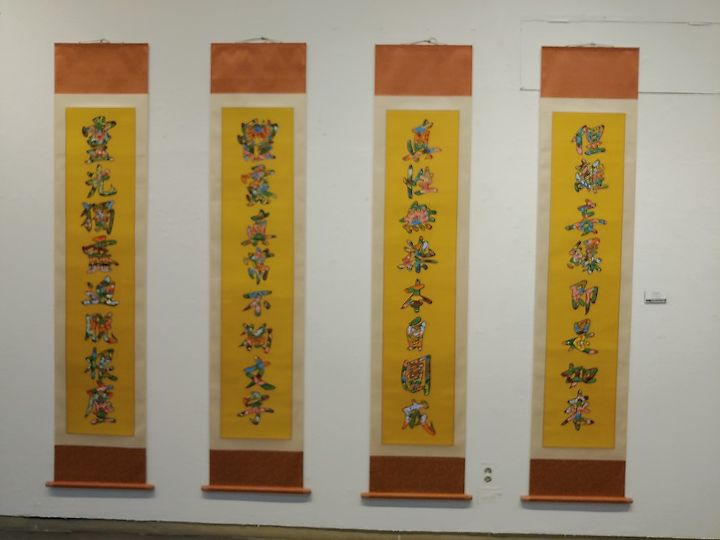 靈光獨露迥脫根塵
體露真常不拘文字
真性無染本自圓成
但離妄緣即是如來